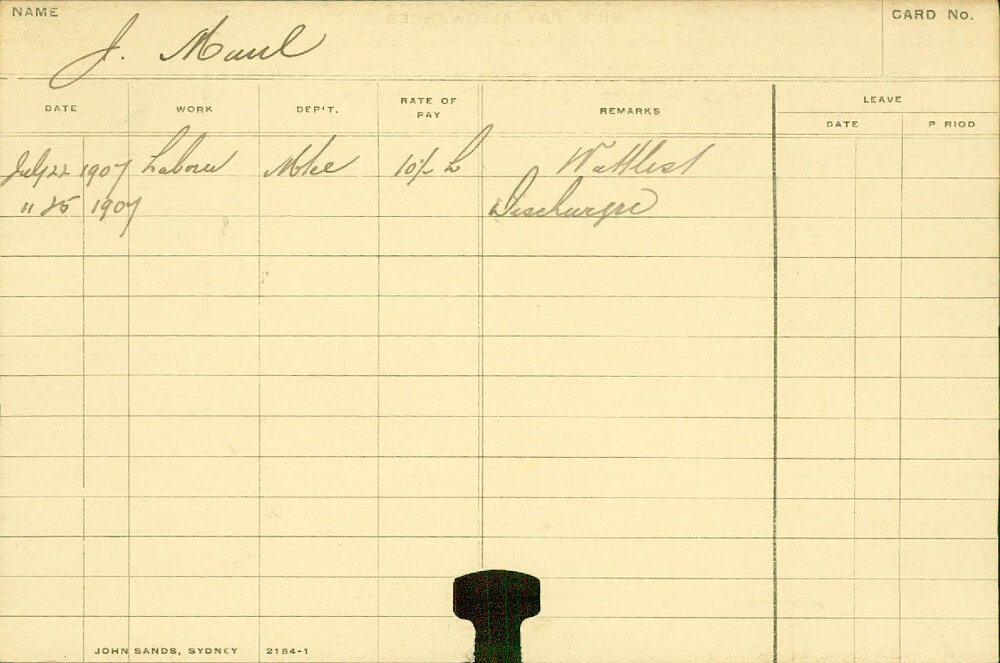 NAME
CARD No.
J. Maul
DATE WORK DEP'T. RATE OF PAY REMARKS LEAVE
DATE P RIOD
July 22 1907 Labour 10/- Wattlest
" 25 1907 Discharge
JOHN SANDS, SYDNEY 2154-1